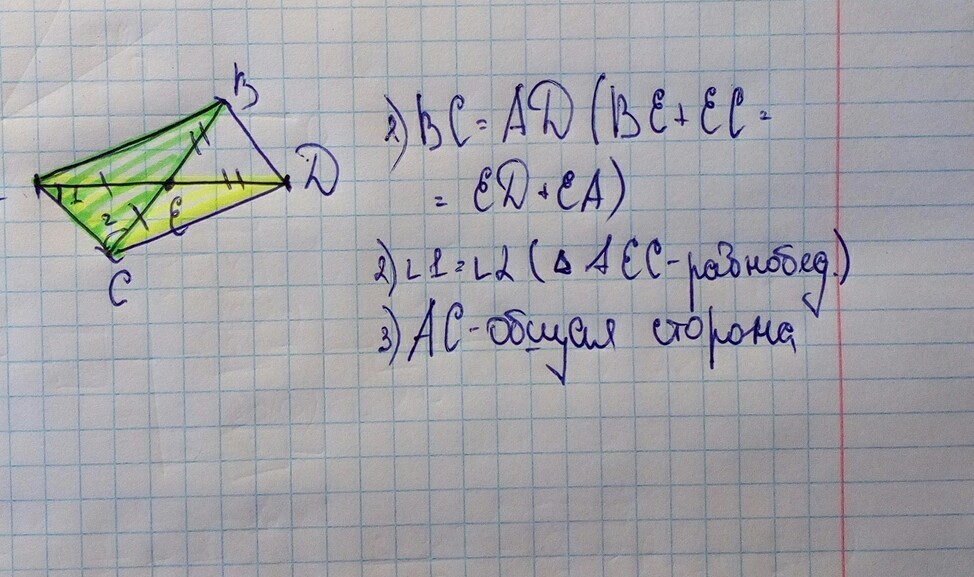 B
1
2
E
D
C
2) BC = AD (BE + EC =
= ED + EA)
2) ∠1 = ∠2 (Δ AEC - равнобед.)
3) AC - общая сторона